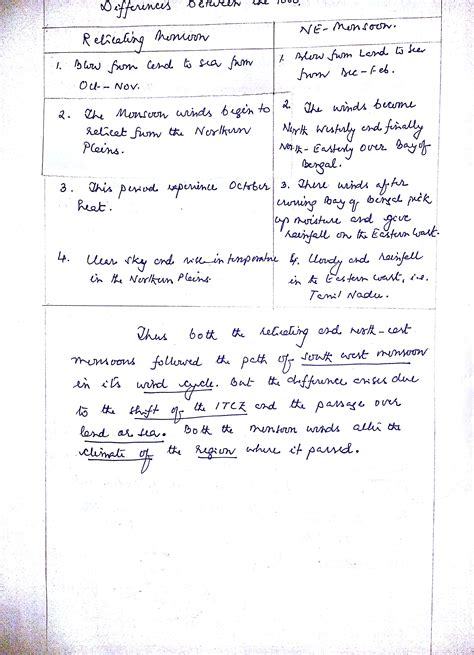 Differences between the two.
Retreating Monsoon
NE-Monsoon.
1. Blow from land to sea from
Oct-Nov.
1. Blow from Land to Sea
from Dec-Feb.
2. The Monsoon winds begin to
retreat from the Northern
Plains.
2. The winds become
North Westerly and finally
North-Easterly over Bay of
Bengal.
3. This period experience October
heat.
3. These winds after
crossing Bay of Bengal pick
up moisture and gave
rainfall on the Eastern Coast.
4. Clear sky and rise in temperature
in the Northern Plains.
4. Cloudy and rainfall
in the Eastern coast, i.e.
Tamil Nadu.
Thus both the retreating and north-east
monsoons followed the path of south west monsoon
in its wind cycle. But the difference arises due
to the shift of the ITCZ and the passage over
land or sea. Both the monsoon winds alter the
climate of the region where it passed.